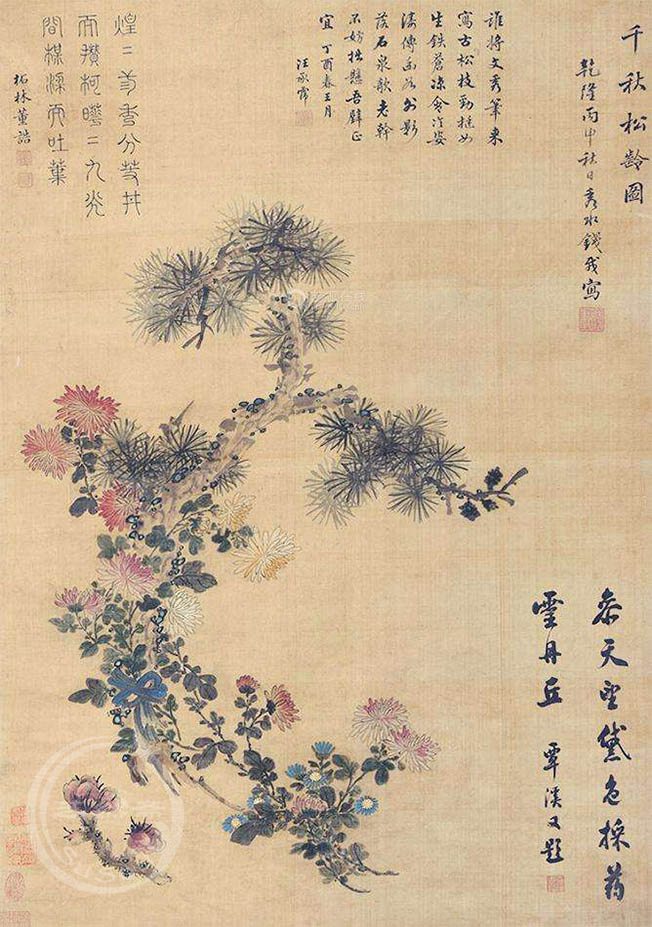 千秋松齡圖
乾隆丙申秋日秀水錢載寫
誰將文秀筆來
寫古松枝勁挺如
生鐵蒼涼含冷姿
濤傳幽谷外影
落石泉欹老幹
不妨拙懸吾壁正
宜 丁酉春王月
汪承霈
煌二 香分
而攢柯曄二九光
間 而吐葉
柘林董誥
參天望黛色採葯
靈丹丘 覃溪又題